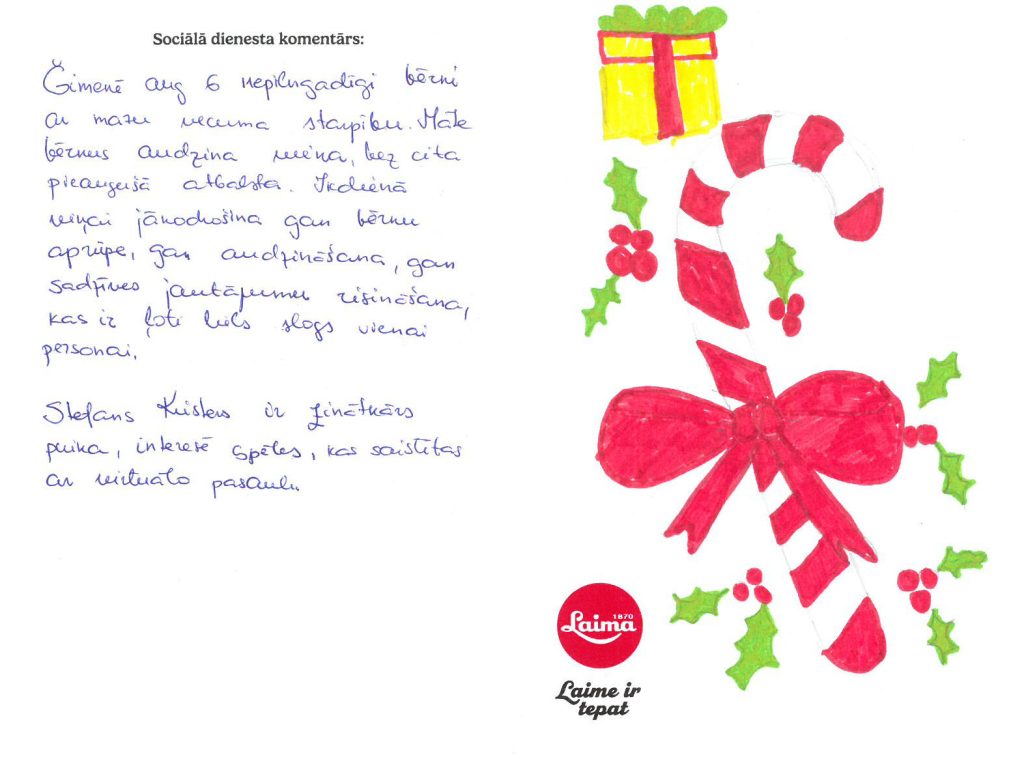 Sociālā dienesta komentārs:
Ģimenē aug 6 nepilngadīgi bērni
ar mazu vecuma starpību. Māte
bērnus audzina viena, bez cita
pieaugušā atbalsta. Ikdienā
viņai jānodrošina gan bērnu
aprūpe, gan audzināšana, gan
sadzīves jautājumu risināšana,
kas ir ļoti liels slogs vienai
personai.
Stefans Kristers ir zinātkārs
puika, interesē spēles, kas saistītas
ar virtuālo pasauli.
1870
Laima
Laime ir
tepat